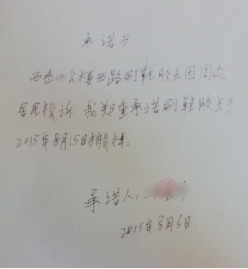 承诺书
西卷小公楼西路刷鞋胶长因周边
居民投诉 我郑重承诺刷鞋胶点于
2015年8月15日搬掉。
承诺人:
2015年8月6日